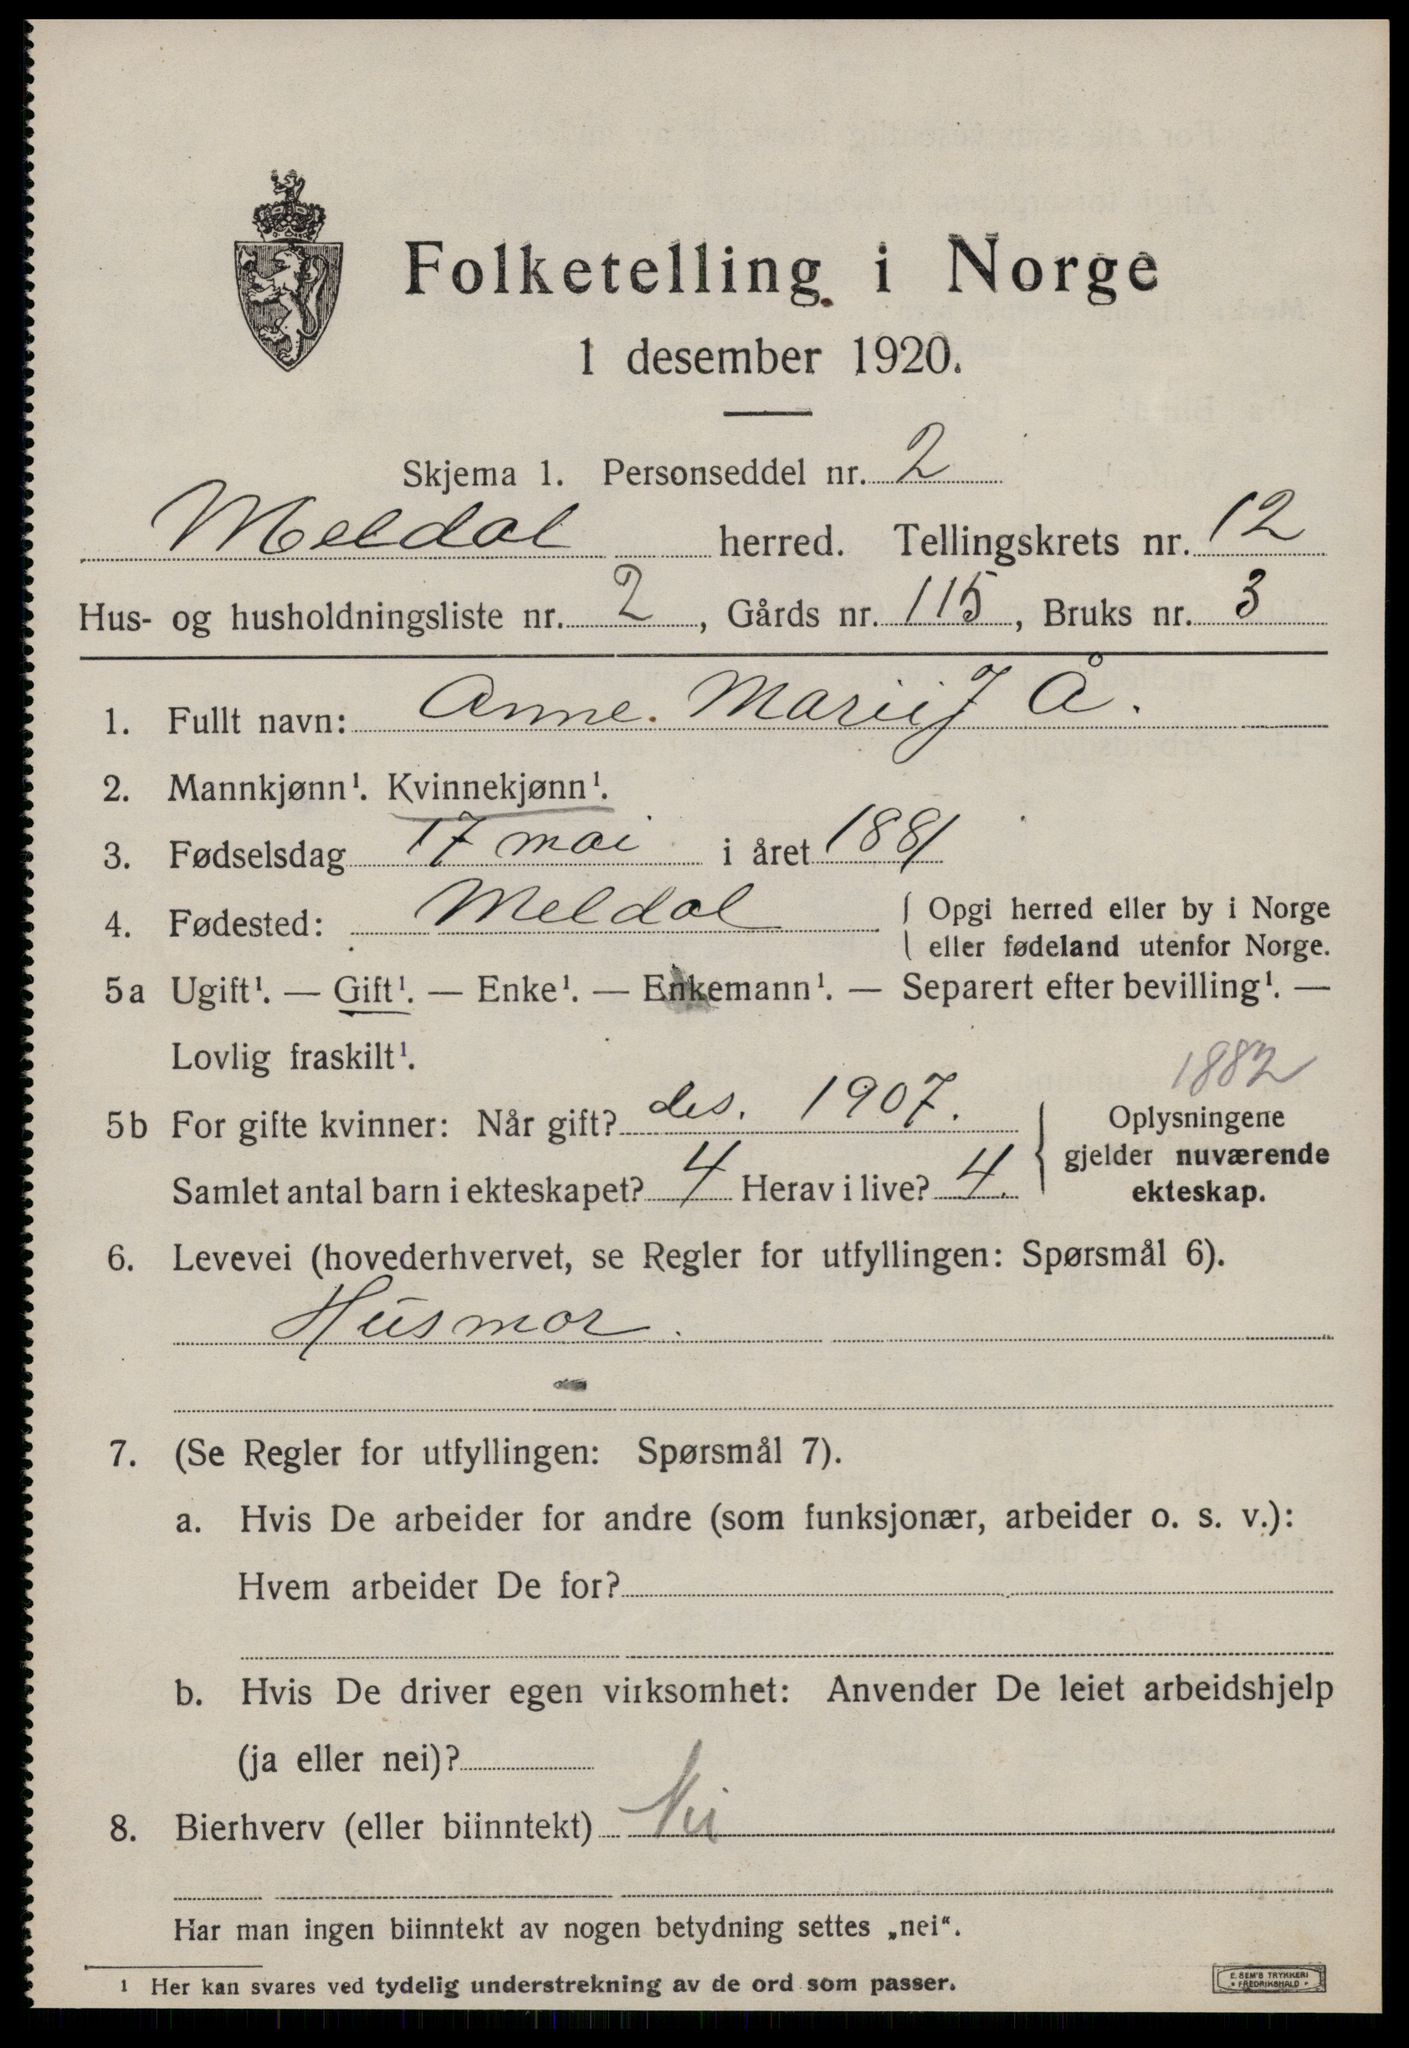 Folketelling i Norge
1 desember 1920.
Skjema 1. Personseddel nr. 2
Meldal herred. Tellingskrets nr. 12
Hus- og husholdningsliste nr. 2, Gårds nr. 115, Bruks nr. 3
1. Fullt navn: Anne. Marie J Å.
2. Mannkjønn¹. Kvinnekjønn¹.
3. Fødselsdag 17 mai i året 1881
4. Fødested: Meldal { Opgi herred eller by i Norge
eller fødeland utenfor Norge.
5a Ugift¹. — Gift¹. — Enke¹. — Enkemann¹. — Separert efter bevilling¹. —
Lovlig fraskilt¹.
1882
5b For gifte kvinner: Når gift? des. 1907. } Oplysningene
gjelder nuværende
Samlet antal barn i ekteskapet? 4 Herav i live? 4. ekteskap.
6. Levevei (hovederhvervet, se Regler for utfyllingen: Spørsmål 6).
Husmor.
7. (Se Regler for utfyllingen: Spørsmål 7).
a. Hvis De arbeider for andre (som funksjonær, arbeider o. s. v.):
Hvem arbeider De for?
b. Hvis De driver egen virksomhet: Anvender De leiet arbeidshjelp
(ja eller nei)?
8. Bierhverv (eller biinntekt) Nei
Har man ingen biinntekt av nogen betydning settes „nei“.
¹ Her kan svares ved tydelig understrekning av de ord som passer.
E. SEM'S TRYKKERI
• FREDRIKSHALD •